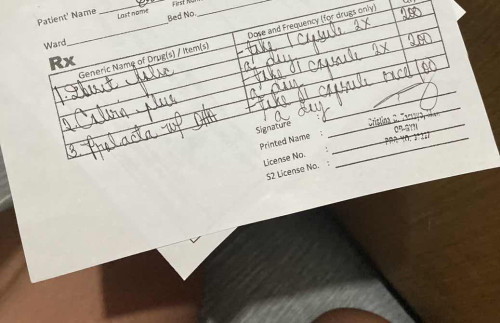 Patient' Name
Last name
Ward
Bed No.
Rx
Generic Name of Drug(s) / Item(s)
Dose and Frequency (for drugs only)
1. Iberet folic
- take 1 capsule 2x
a day
200
2. Calvin plus
- take 01 capsule 2x
a day
200
3. Prolacta w/ DHA
- take 01 capsule once
a day
100
Signature :
Printed Name :
License No. :
S2 License No. :
OB-GYN